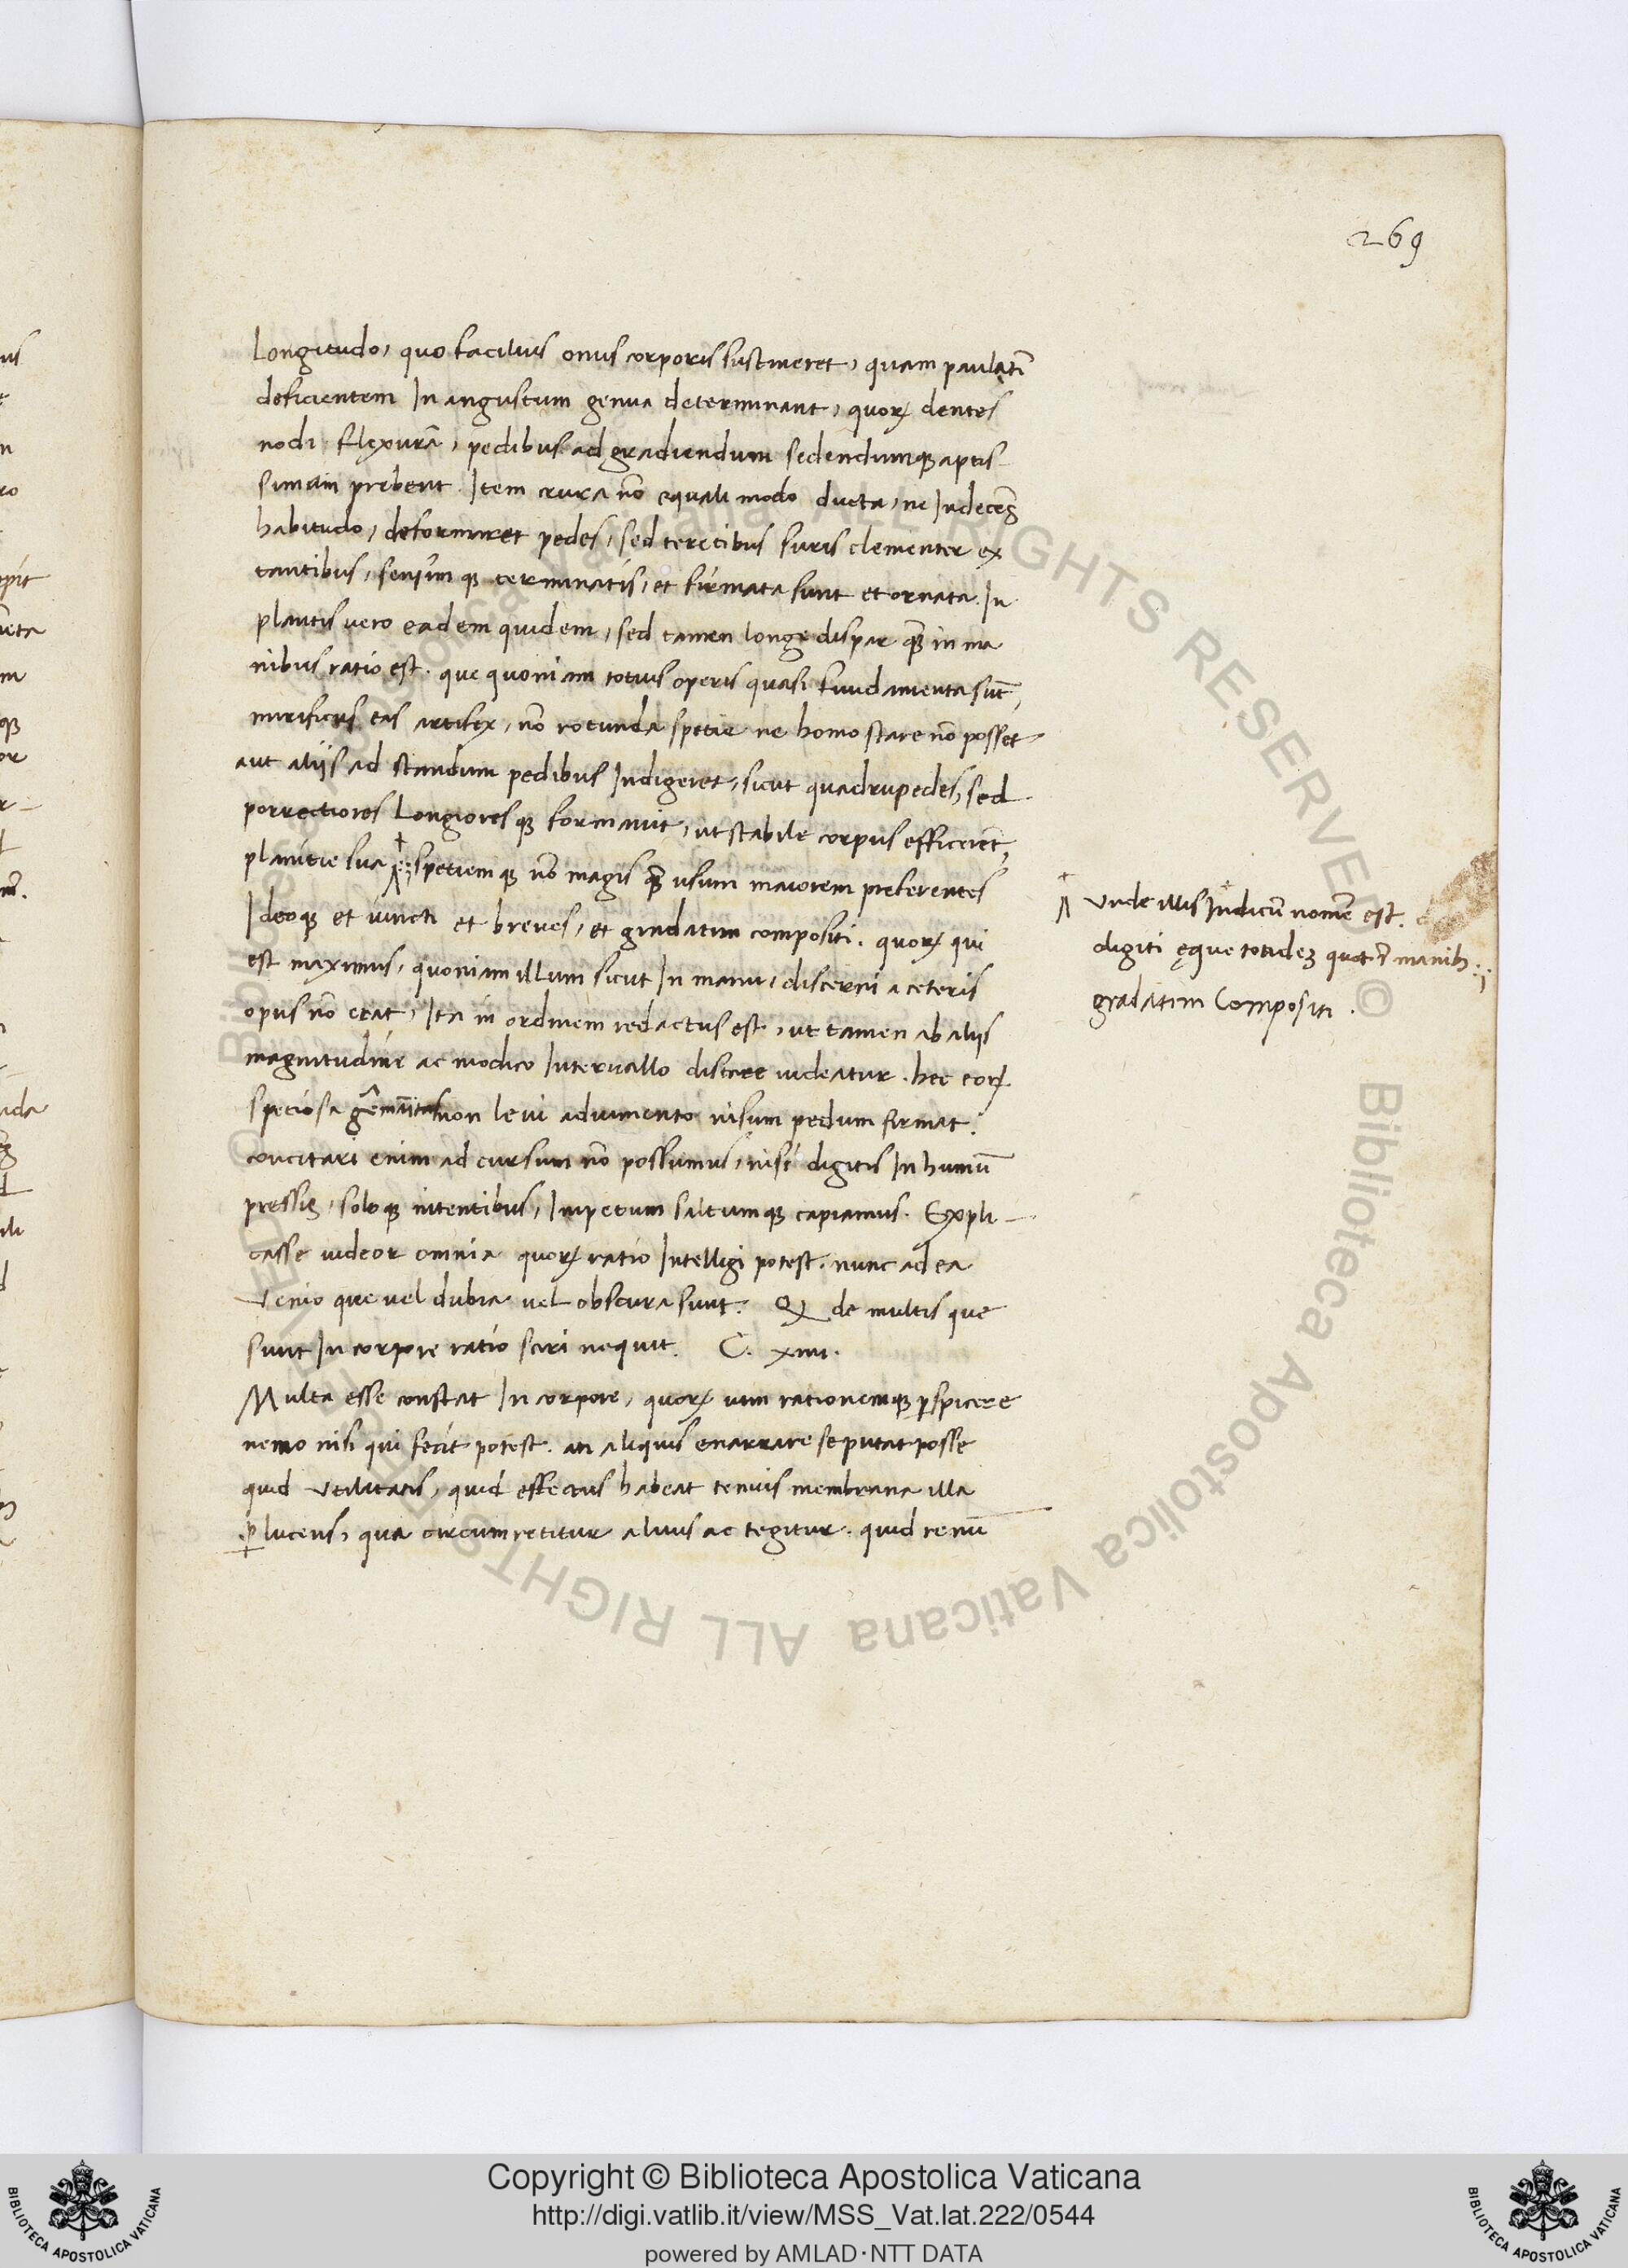 269
Longitudo, quo facilius onus corporis sustineret, quam paulati᷃
deficientem In angustum genua determinant, quoꝝ dentes
nodi flexurā, pedibus ad gradiendum sedendumqꝫ aptis
simam prebent. Item crura nō equali modo ducta, ne Indecēs
habitudo, deformaret pedes, sed teretibus suris clementer ex
tantibus, sensimqꝫ terminatis, et firmata sunt et ornata. In
plantis uero eadem quidem, sed tamen longe dispar qꝫ in ma
nibus ratio est. que quoniam totius operis quasi fundamenta sūt,
mirificus eas artifex, nō rotunda spetie ne homo stare nō posset
aut aliis ad standum pedibus Indigeret, sicut quadrupedes, sed
porrectiores Longioresqꝫ formauit, ut stabile corpus efficerēt,
planitie sua spetiemqꝫ nō magis qꝫ usum maiorem preferentes
Ideoqꝫ et iuncti et breues, et gradatim compositi. quoꝝ qui
est maximus, quoniam illum sicut In manu, discerni a ceteris
opus nō erat, Ita in ordinem redactus est, ut tamen ab aliis
magnitudine ac modico Interuallo distare uideatur. hec eoꝝ
speciosa gēmītas non leui adiumento nisum pedum firmat.
concitari enim ad cursum nō possumus, nisi digitis In humū
pressis, soloqꝫ nitentibus, Impetum saltumqꝫ capiamus. Expli
casse uideor omnia quoꝝ ratio Intelligi potest. nunc ad ea
Venio que uel dubia uel obscura sunt. Qꝫ de multis que
sunt In corpore ratio sciri nequit. C. xiiii.
Multa esse constat In corpore, quoꝝ uim rationemqꝫ ꝑspicere
nemo nisi qui fecit potest. an aliquis enarrare se putat posse
quid Vtilitatis, quid effectus habeat tenuis membrana illa
ꝑlucens, qua circumretitur aluus ac tegitur. quid renū
Vnde illis Indicū nomē est.
digiti ęque totideꝫ quot ī manibꝫ
gradatim Compositi.
Copyright © Biblioteca Apostolica Vaticana
http://digi.vatlib.it/view/MSS_Vat.lat.222/0544
powered by AMLAD·NTT DATA